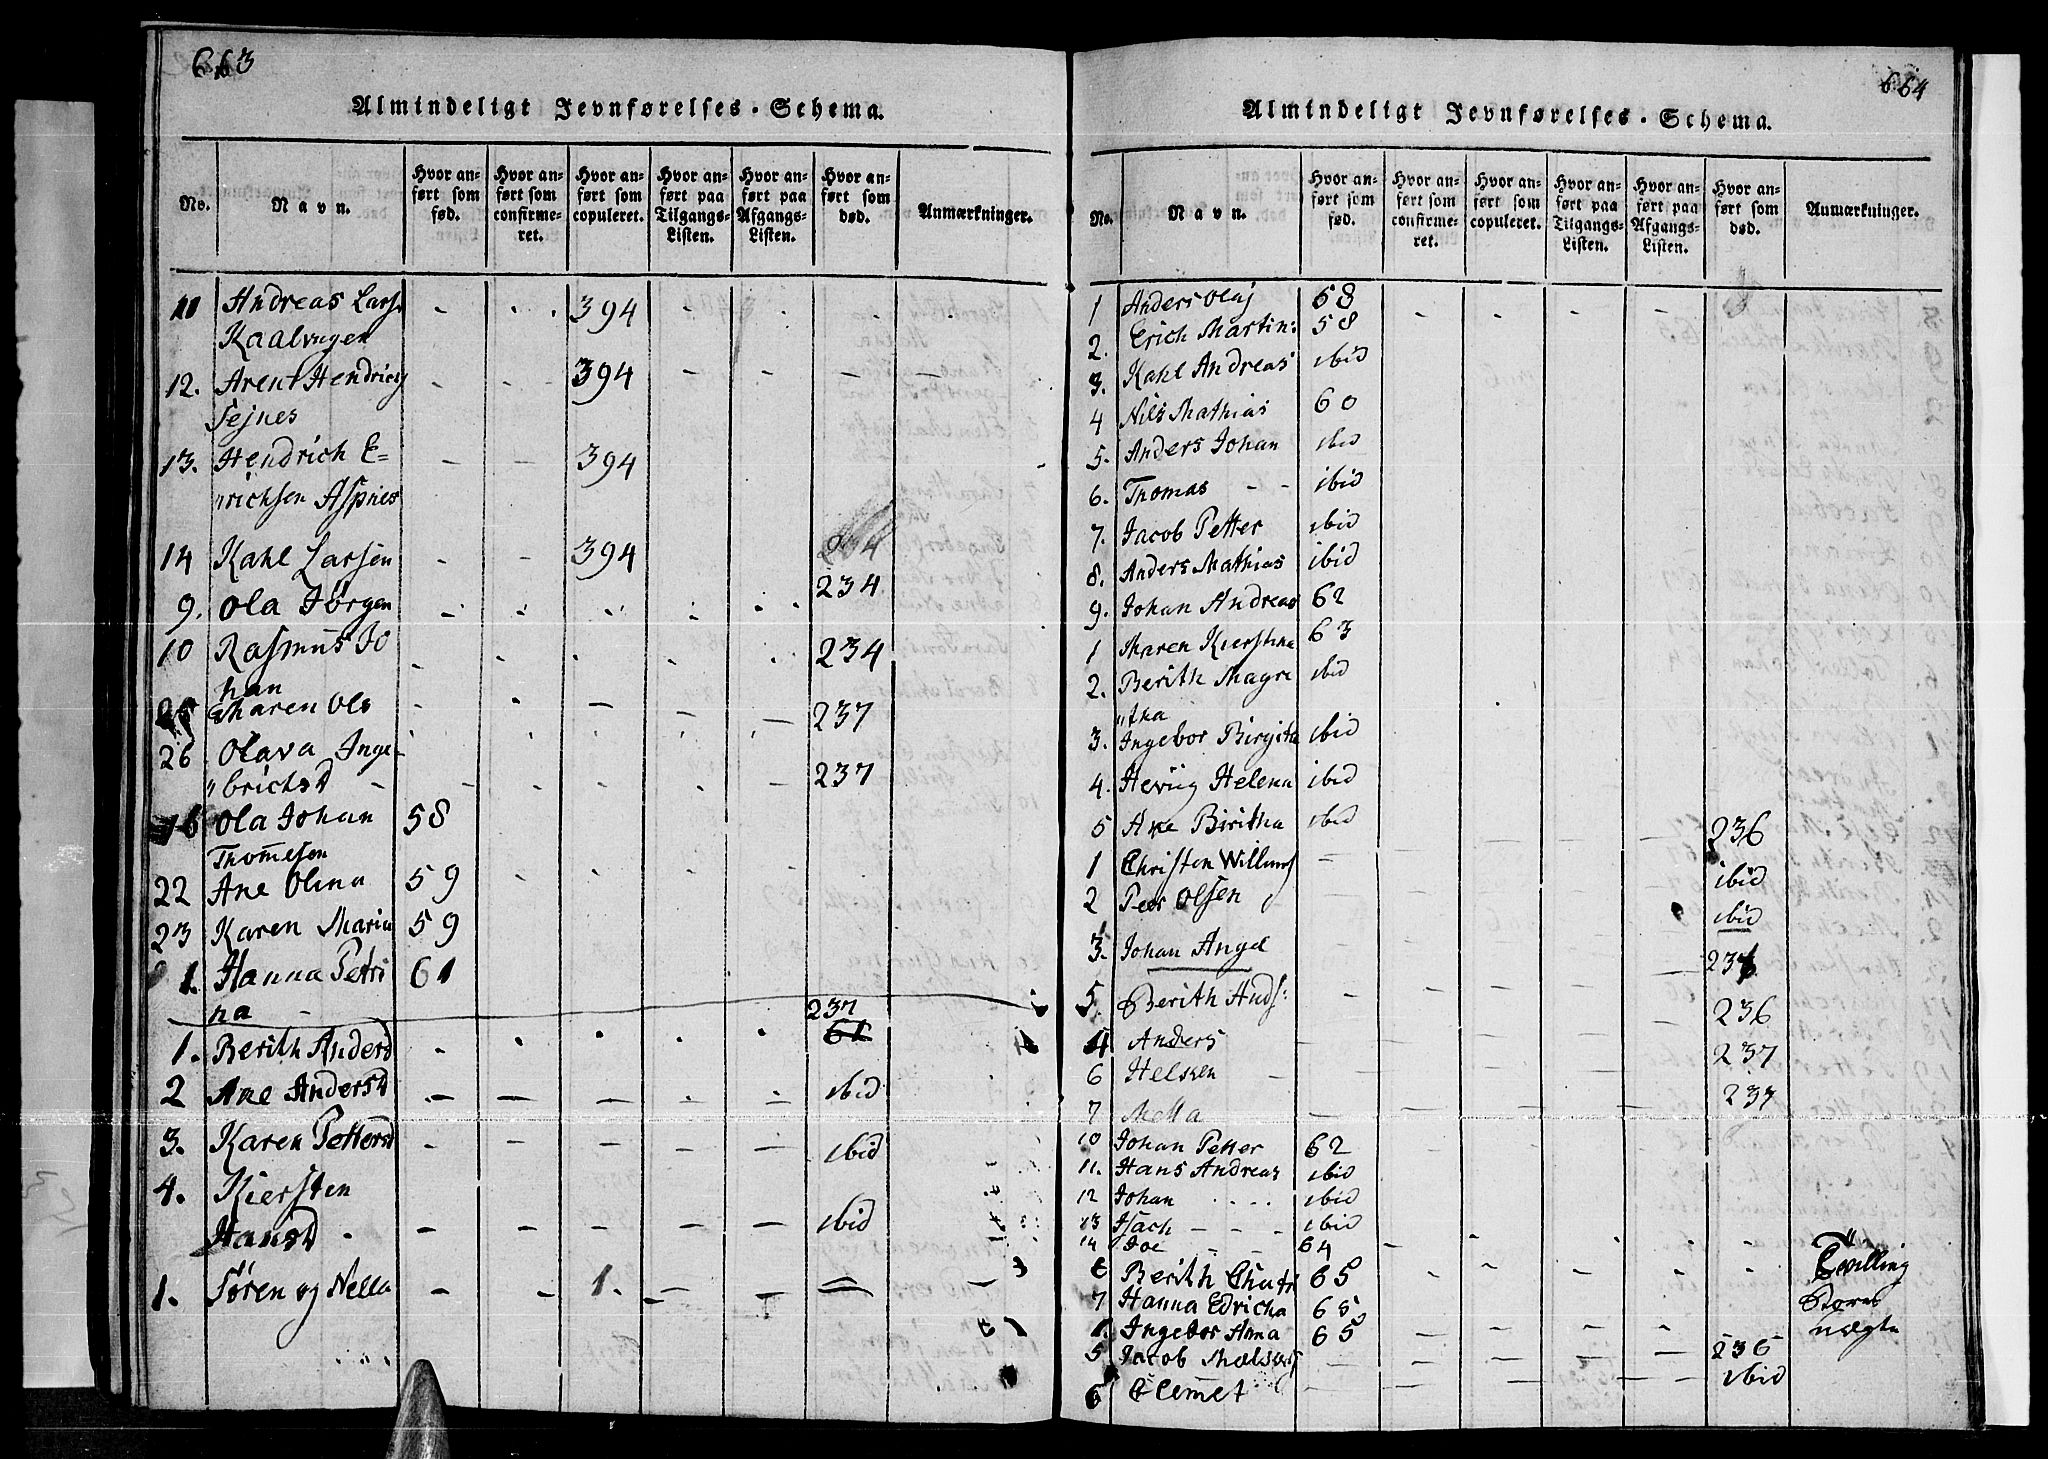 663
Almindeligt Jevnførelses-Schema.
No. Navn. Hvor anført som fød. Hvor anført som confirmeret. Hvor anført som copuleret. Hvor anført paa Tilgangs-Listen. Hvor anført paa Afgangs-Listen. Hvor anført som død. Anmærkninger.
11 Andreas Lars: - - . 394 - . .
Kaalvagen
12. Arent Hendrics - - - 394 - - - -
Sejnes
13. Hendrich E= - - 394
"richsen Aspnes
14 Kahl Larsen - - 394
9. Ola Jörgen 234
10 Rasmus Jo 234
han
Maren Ols 237
26 Olava Inge-
"brichsd - 237
16 Ola Johan 58
Thomesen
22 Ane Olina 59
23 Karen Maria 59
1. Hanna Petri 61
na -
1. Berith Andersd 237 61
2 Ane Andersd ibid
3. Karen Pettersd ibid
4. Kiersten
Hansd - ibid
1. Sören og Nella - - 1. - -
664
Almindeligt Jevnførelses-Schema.
No. Navn. Hvor anført som fød. Hvor anført som confirmeret. Hvor anført som copuleret. Hvor anført paa Tilgangs-Listen. Hvor anført paa Afgangs-Listen. Hvor anført som død. Anmærkninger.
1 Anders Olaj 58
2. Erich Martin: 58
3. Kahl Andreas ibid
4 Nils Mathias 60
5. Anders Johan ibid
6. Thomas - - ibid
7. Jacob Petter ibid
8. Anders Mathias ibid
9. Johan Andreas 62
1 Maren Kierstina 63
2. Berith Magre ibid
"tha
3. Ingebor Birgita ibid
4. Hevig Helena ibid
5 Ane Biritha ibid
1 Christen Willums - 236
2 Peer Olsen ibid
3. Johan Angel ibid
5. Berith Ands: 237
4 Anders 236
6 Helsken - 237
7 Mella 237
10 Johan Petter 62
11. Hans Andreas ibid
12 Johan .... ibid
13 Isach - - - ibid
14 Joe - - 64
Berith Chatri 65 Tvilling
7 Hanna Edricha 65 Børn
8. Ingebor Anna 65 uægte
5 Jacob 236
6 Clemet ibid